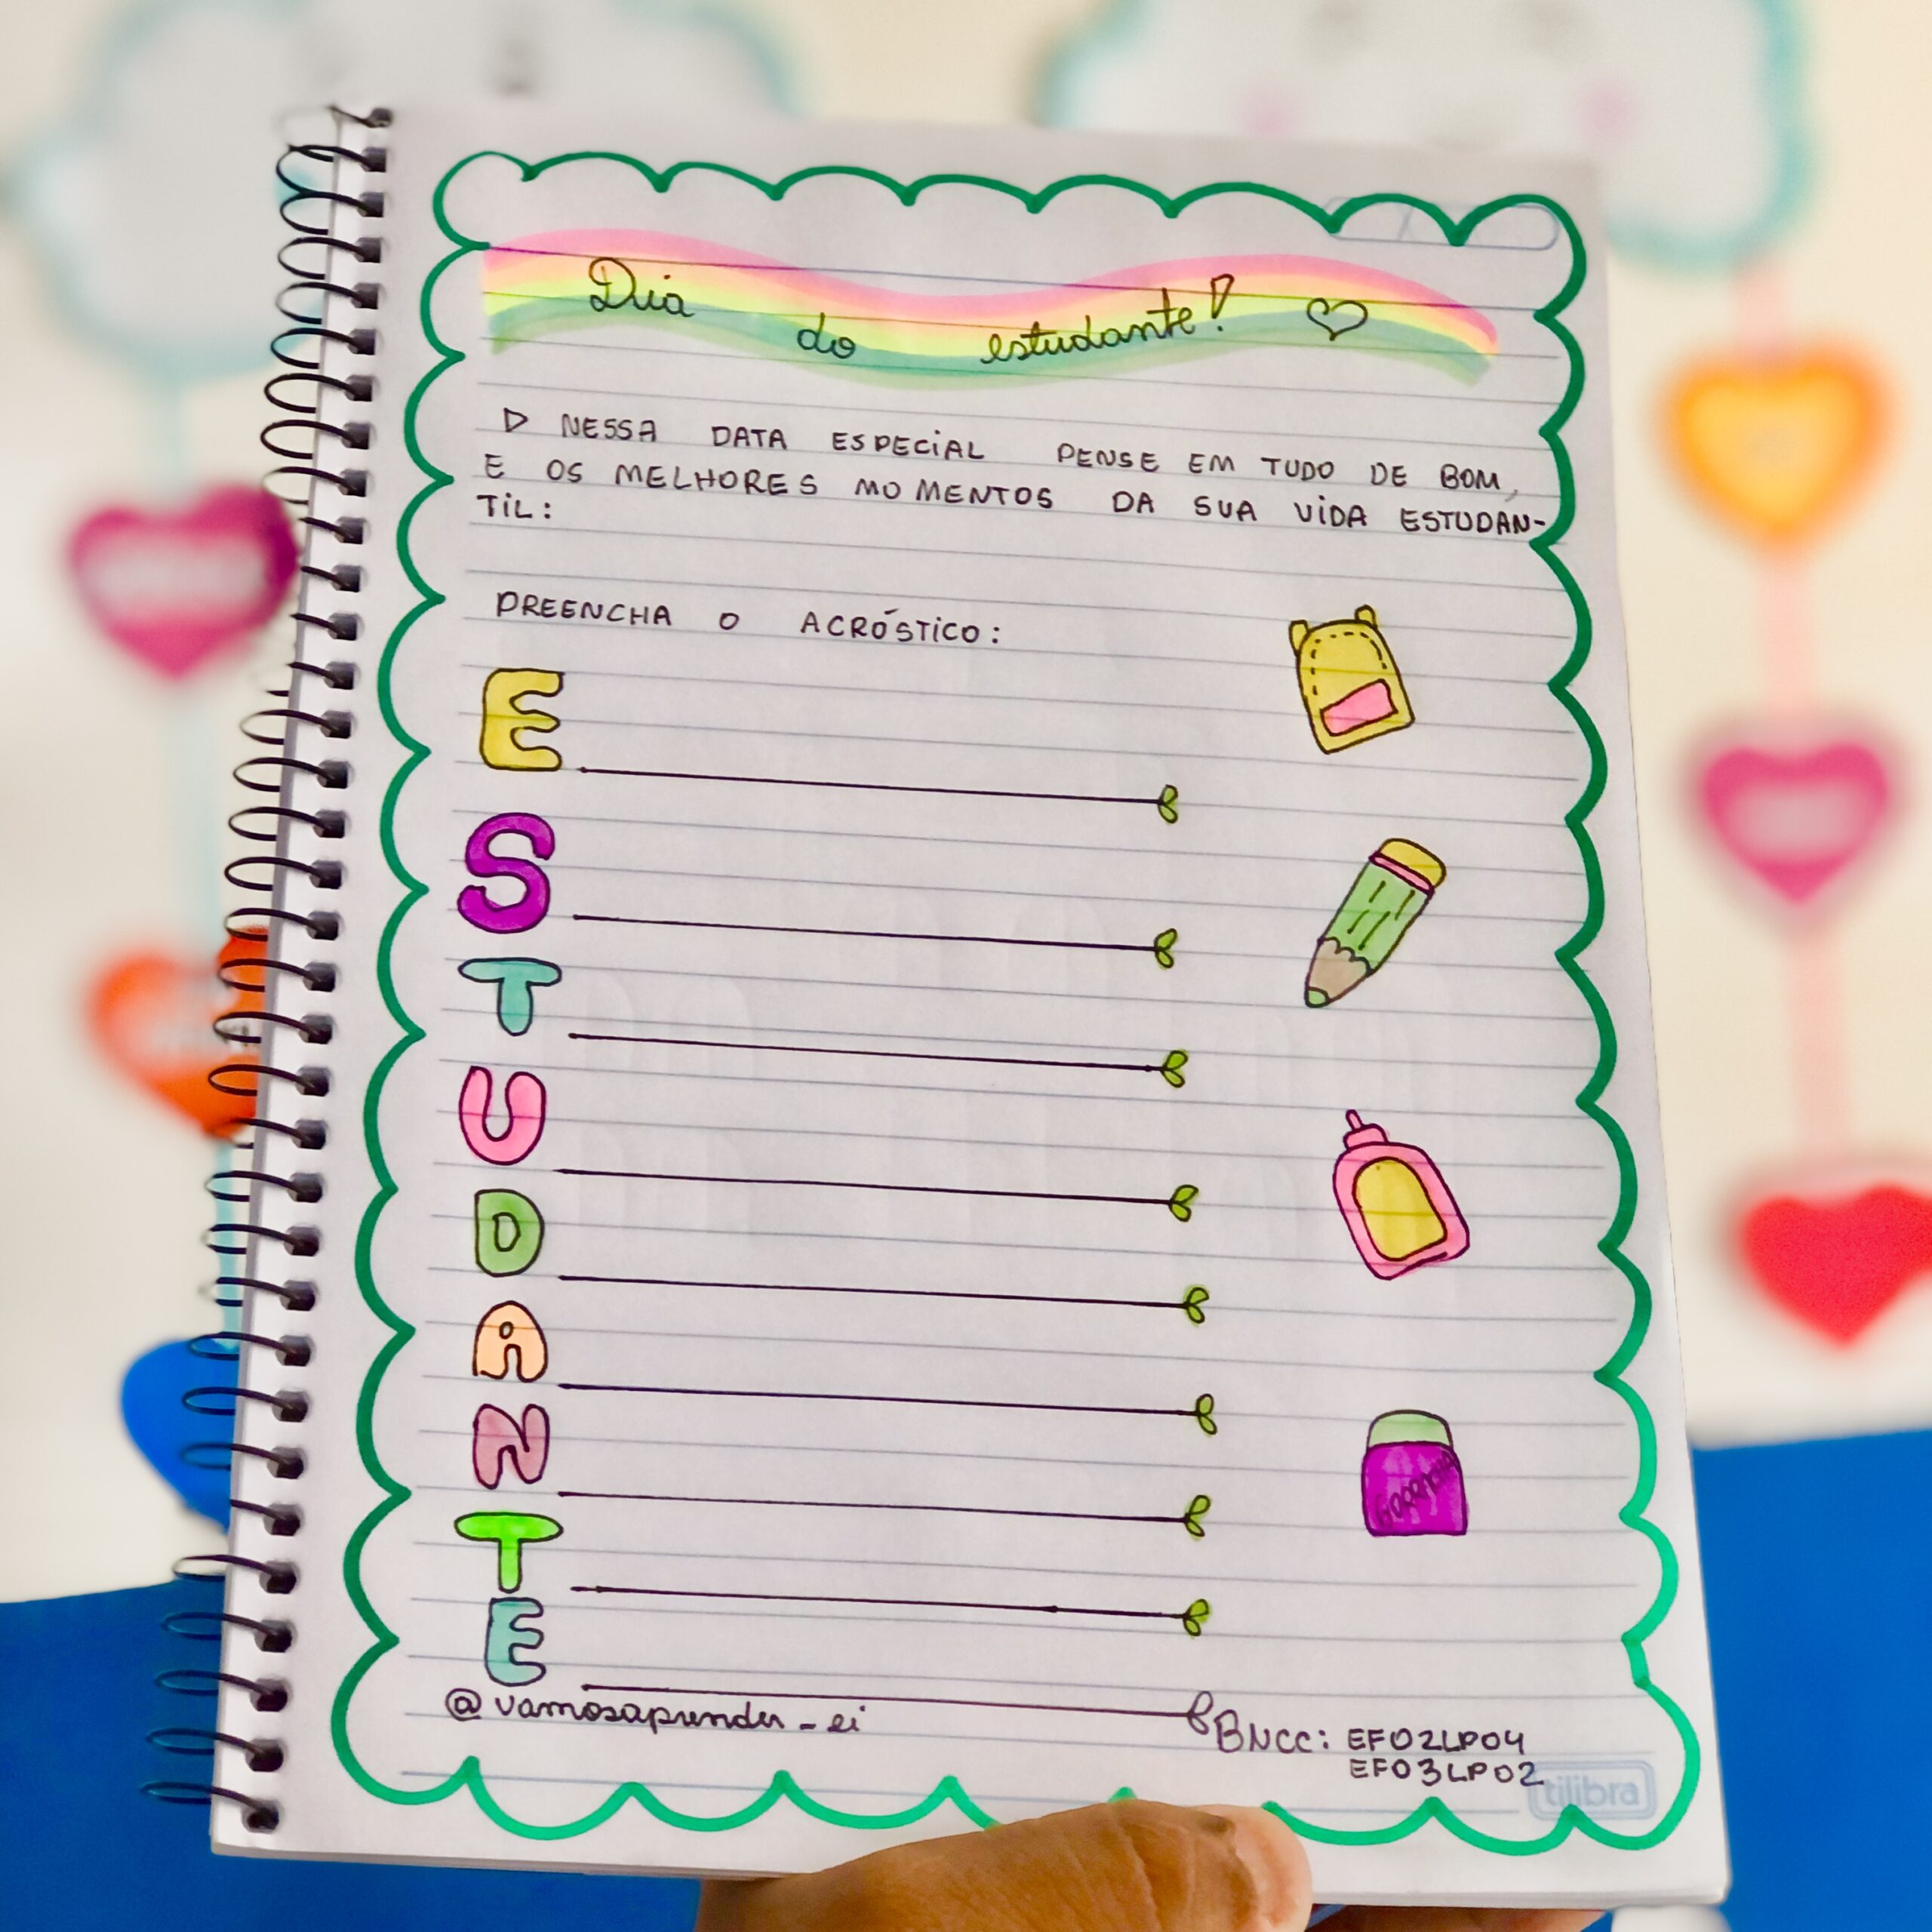 Dia do estudante!
NESSA DATA ESPECIAL PENSE EM TUDO DE BOM,
E OS MELHORES MOMENTOS DA SUA VIDA ESTUDAN-
TIL:
PREENCHA O ACRÓSTICO:
E
S
T
U
D
A
N
T
E
@vamosaprender_ei
BNCC: EF02LP04
EF03LP02
tilibra